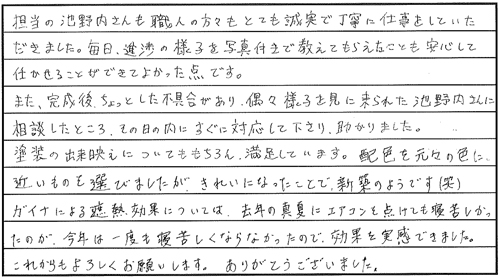 担当の池野内さんも職人の方々もとても誠実で丁寧に仕事をしていた
だきました。毎日、進渉の様子を写真付きで教えてもらえたことも安心して
任かせることができてよかった点です。
また、完成後、ちょっとした不具合があり、偶々様子を見に来られた池野内さんに
相談したところ、その日の内にすぐに対応して下さり、助かりました。
塗装の出来映えについてももちろん、満足しています。配色を元々の色に
近いものを選びましたが、きれいになったことで、新築のようです(笑)
ガイナによる遮熱効果については、去年の真夏にエアコンを点けても寝苦しかっ
たのが、今年は一度も寝苦しくならなかったので、効果を実感できました。
これからもよろしくお願いします。 ありがとうございました。